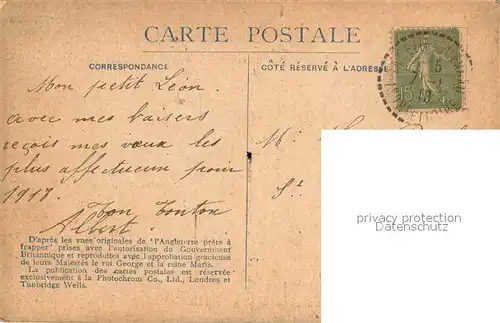 CARTE POSTALE
CORRESPONDANCE
CÔTÉ RÉSERVÉ À L'ADRESSE
Mon petit Léon.
avec mes baisers
reçois mes vœux les
plus affectueux pour
1917.
Ton Tonton
Albert
M.
St
15
privacy protection
Datenschutz
D'après les vues originales de "l'Angleterre prête à
frapper" prises avec l'autorisation du Gouvernment
Britannique et reproduites avec l'approbation gracieuse
de leurs Majestés le roi George et la reine Marie.
La publication des cartes postales est réservée
exclusivement à la Photochrom Co., Ltd., Londres et
Tunbridge Wells.